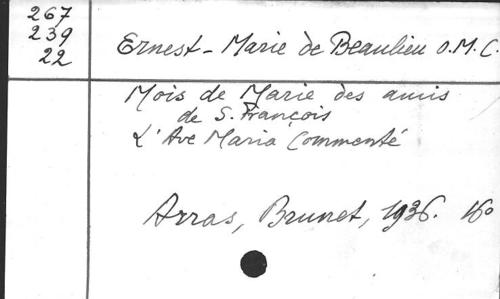 267
239
22
Ernest-Marie de Beaulieu O.M.C.
Mois de Marie des amis
de S. François
L'Ave Maria Commenté
Arras, Brunet, 1936. 16o